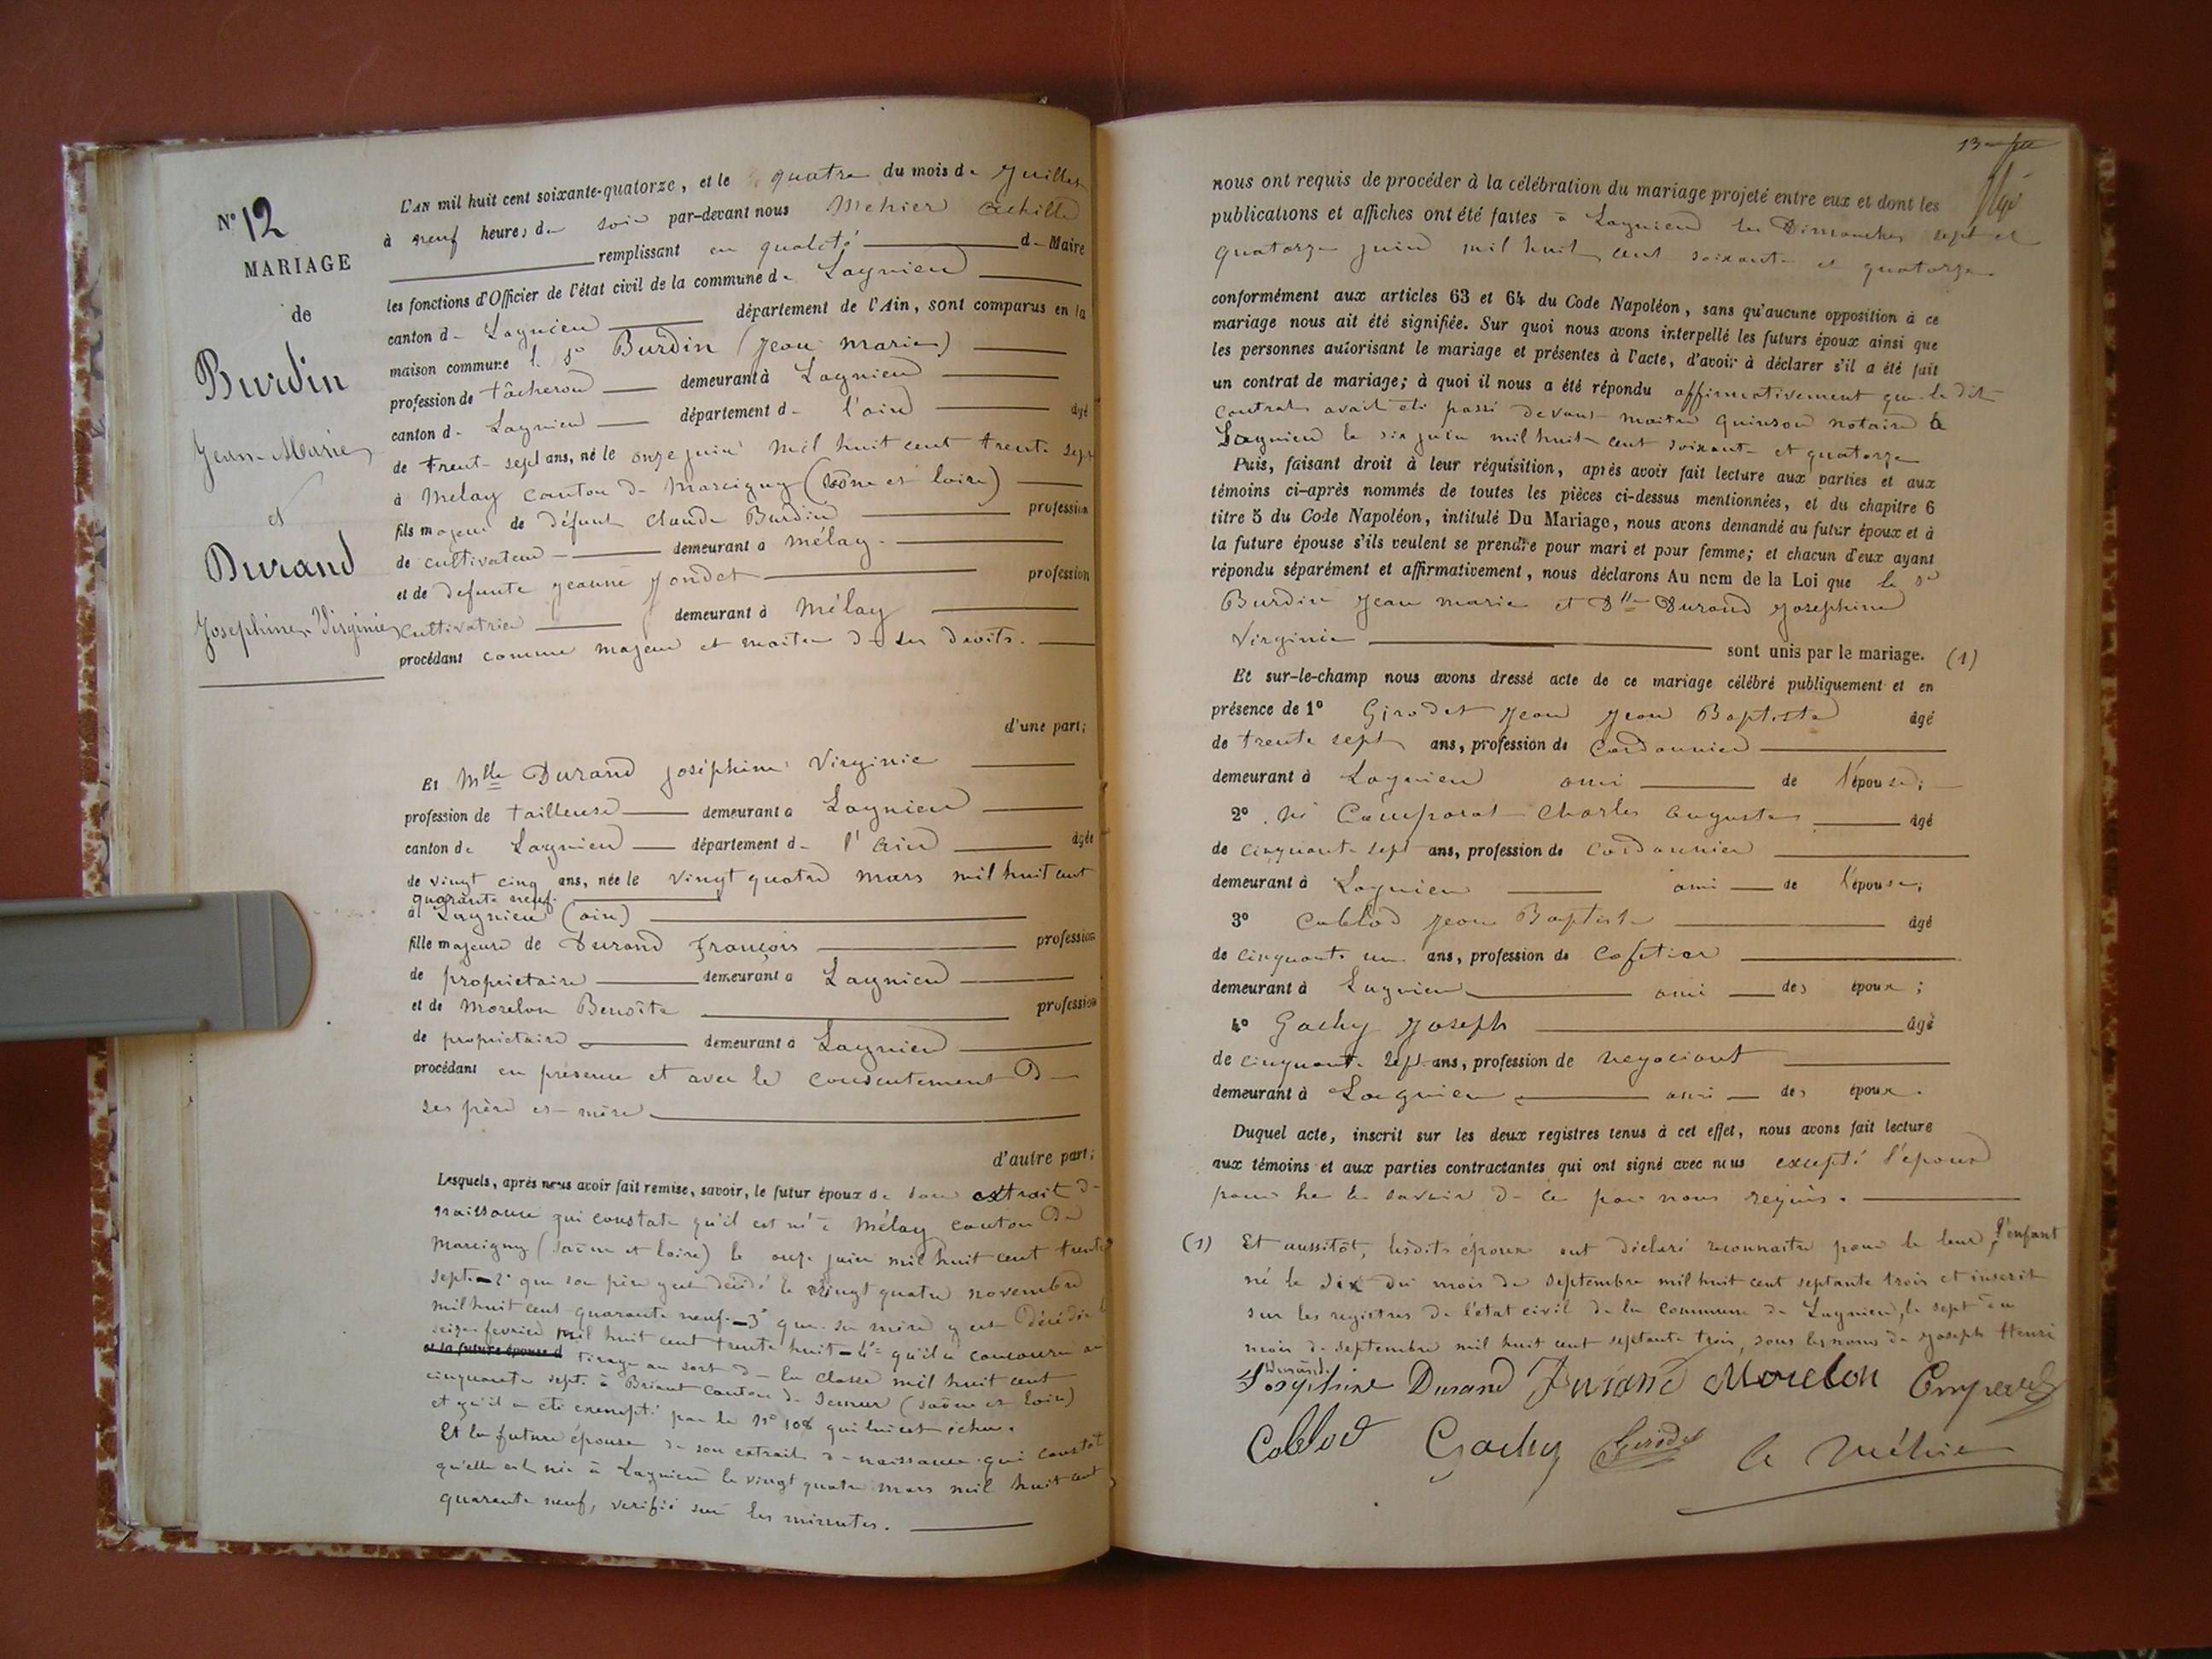 N° 12
MARIAGE
de
Burdin
Jean-Marie
et
Durand
Josephine-Virginie
L'AN mil huit cent soixante-quatorze, et le quatre du mois de Juillet
à neuf heures du soir par-devant nous Mehier Achille
remplissant en qualité de Maire
les fonctions d'Officier de l'état civil de la commune de Lagnieu
canton de Lagnieu département de l'Ain, sont comparus en la
maison commune l. sr Burdin (Jean marie)
profession de tâcheron demeurant à Lagnieu
canton de Lagnieu département de l'ain âgé
de trente sept ans, né le onze juin mil huit cent trente sept
à Mélay canton de Marcigny (Saône et loire)
fils majeur de défunt Claude Burdin profession
de cultivateur demeurant à mélay.
et de défunte Jeanne Jondet profession
cultivatrice demeurant à Mélay
procédant comme majeur et maitre de ses droits.
d'une part;
Et Mlle Durand Joséphine Virginie
profession de tailleuse demeurant à Lagnieu
canton de Lagnieu département de l'Ain âgée
de vingt cinq ans, née le vingt quatre mars mil huit cent
quarante neuf.
à Lagnieu (ain)
fille majeure de Durand François profession
de propriétaire demeurant à Lagnieu
et de Morelon Benoîte profession
de propriétaire demeurant à Lagnieu
procédant en présence et avec le consentement de
ses père et mère
d'autre part;
Lesquels, après nous avoir fait remise, savoir, le futur époux de son extrait de
naissance qui constate qu'il est né à Mélay canton de
Marcigny (Saône et Loire) le onze juin mil huit cent trente
sept. - 2° que son père y est décédé le vingt quatre novembre
mil huit cent quarante neuf. - 3° que sa mère y est décédée le
seize fevrier mil huit cent trente huit - 4° qu'il a concouru au
et la future épouse d tirage au sort de la classe mil huit cent
cinquante sept. à Briant canton de Semur (saône et loire)
et qu'il a été exempté par le N° 108 qui lui est échu.
Et la future épouse de son extrait de naissance qui constate
qu'elle est née à Lagnieu le vingt quatre mars mil huit cent
quarante neuf, vérifié sur les minutes.
nous ont requis de procéder à la célébration du mariage projeté entre eux et dont les
publications et affiches ont été faites à Lagnieu les Dimanches sept et
quatorze juin mil huit cent soixante et quatorze
conformément aux articles 63 et 64 du Code Napoléon, sans qu'aucune opposition à ce
mariage nous ait été signifiée. Sur quoi nous avons interpellé les futurs époux ainsi que
les personnes autorisant le mariage et présentes à l'acte, d'avoir à déclarer s'il a été fait
un contrat de mariage; à quoi il nous a été répondu affirmativement que le dit
Contrat avait été passé devant maitre Quinson notaire à
Lagnieu le six juin mil huit cent soixante et quatorze
Puis, faisant droit à leur réquisition, après avoir fait lecture aux parties et aux
témoins ci-après nommés de toutes les pièces ci-dessus mentionnées, et du chapitre 6
titre 5 du Code Napoléon, intitulé Du Mariage, nous avons demandé au futur époux et à
la future épouse s'ils veulent se prendre pour mari et pour femme; et chacun d'eux ayant
répondu séparément et affirmativement, nous déclarons Au nom de la Loi que le sr
Burdin Jean marie et Dlle Durand Josephine
Virginie sont unis par le mariage. (1)
Et sur-le-champ nous avons dressé acte de ce mariage célébré publiquement et en
présence de 1° Girodet Jean Jean Baptiste âgé
de trente sept ans, profession de Cordonnier
demeurant à Lagnieu ami de l'épouse;
2° Camparat Charles Auguste âgé
de cinquante sept ans, profession de Cordonnier
demeurant à Lagnieu ami de l'épouse;
3° Cablod Jean Baptiste âgé
de cinquante un ans, profession de Cafetier
demeurant à Lagnieu ami des époux;
4° Gachy Joseph âgé
de cinquante sept ans, profession de negociant
demeurant à Lagnieu ami des époux.
Duquel acte, inscrit sur les deux registres tenus à cet effet, nous avons fait lecture
aux témoins et aux parties contractantes qui ont signé avec nous excepté l'époux
pour ne le savoir de ce par nous requis.
(1) Et aussitôt, lesdits époux ont déclaré reconnaitre pour le leur, l'enfant
né le dix du mois de septembre mil huit cent septante trois et inscrit
sur les registres de l'état civil de la commune de Lagnieu, le sept du
mois de septembre mil huit cent septante trois, sous les noms de Joseph Henri
Durand.
Josephine Durand Durand Morelon
Cablod Gachy Girodet A Méhier